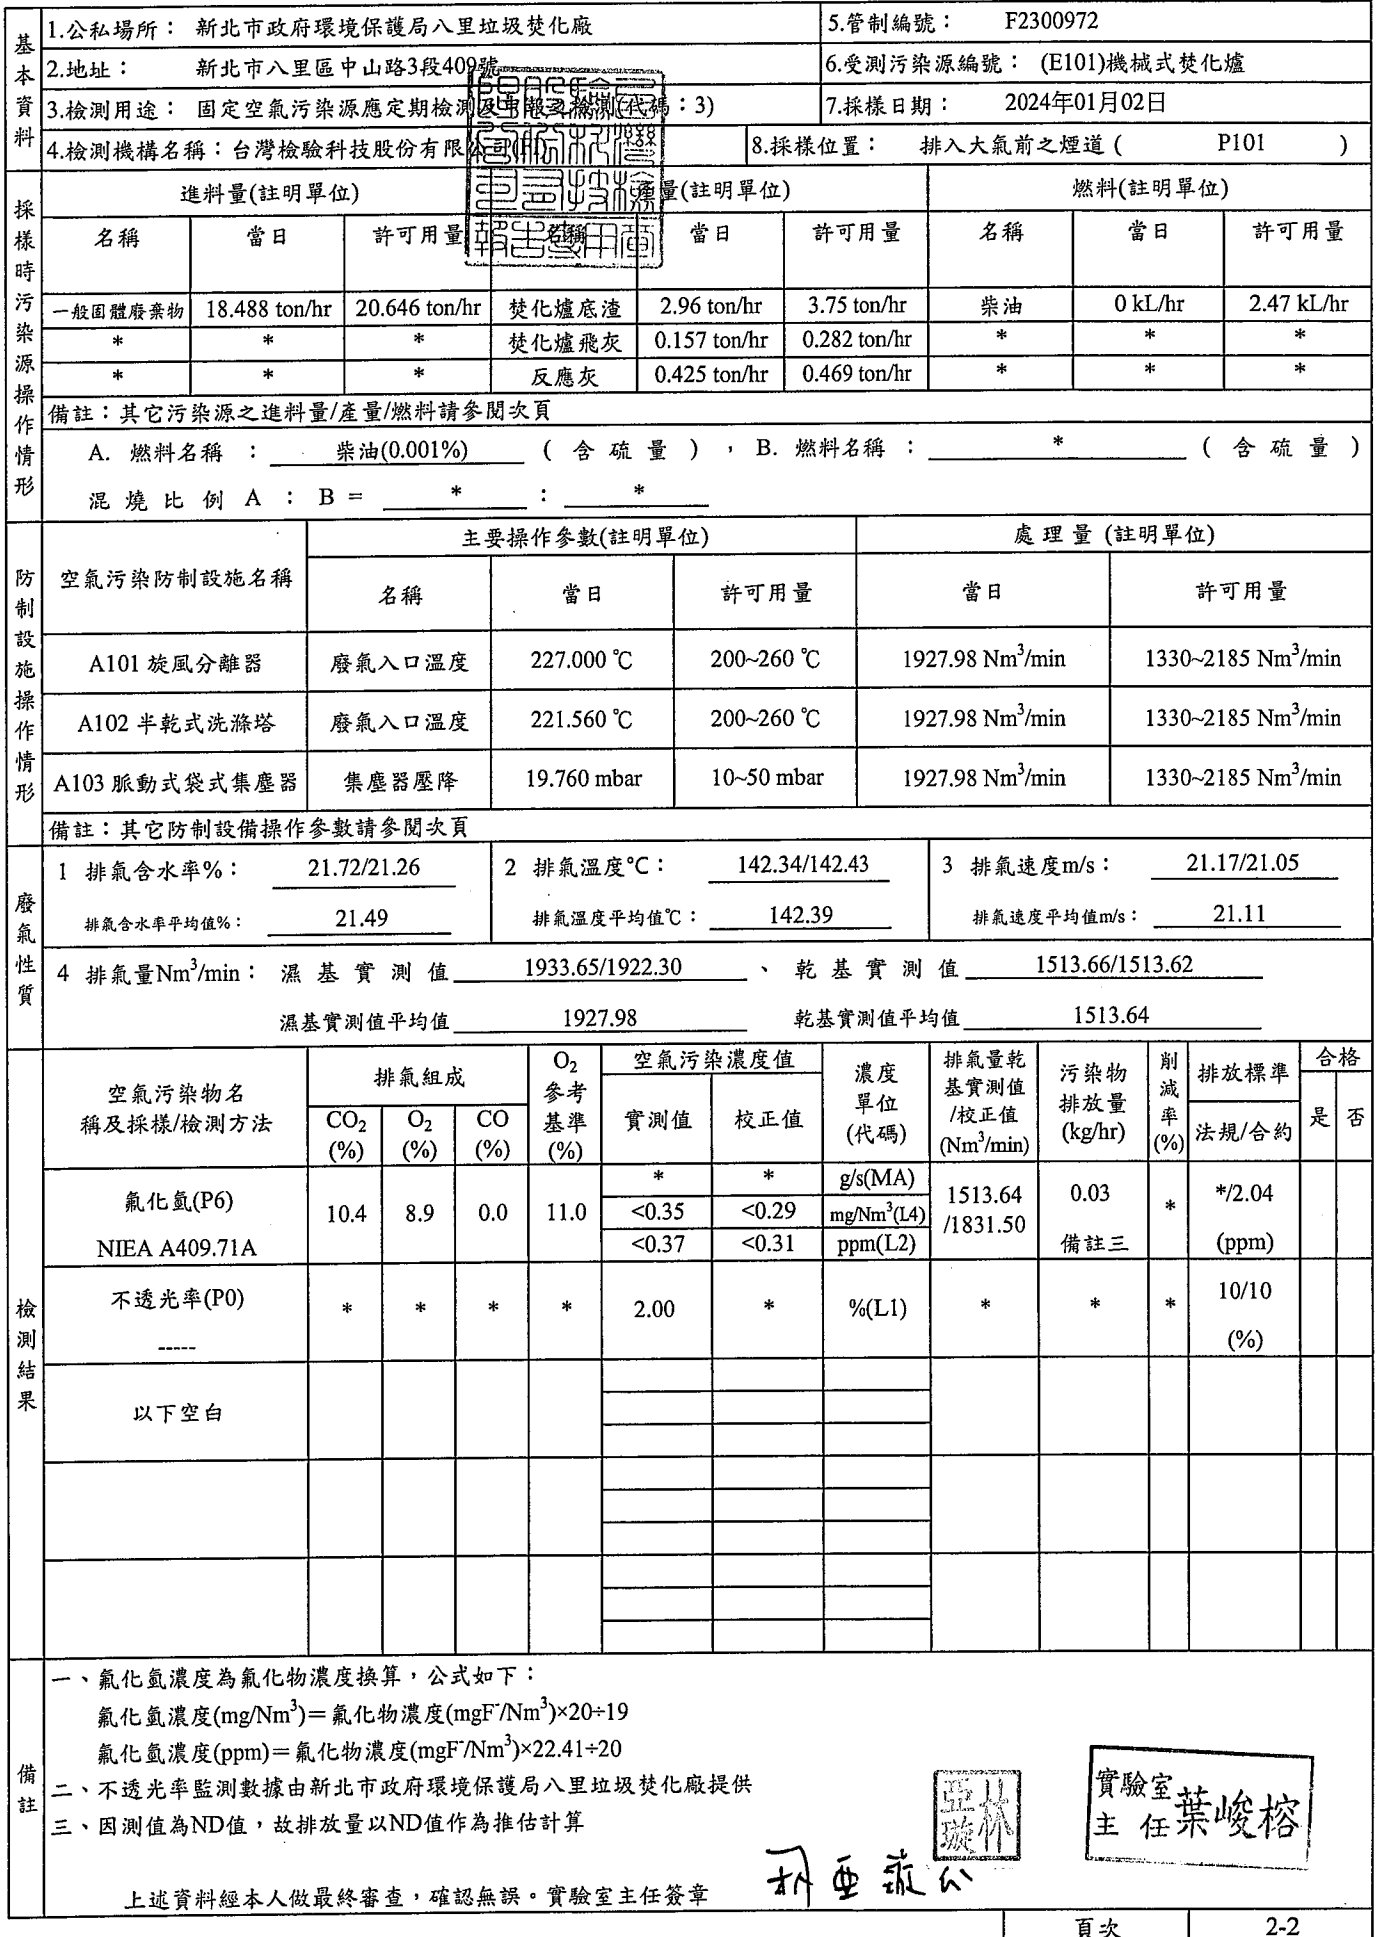 基本資料
1.公私場所： 新北市政府環境保護局八里垃圾焚化廠 5.管制編號： F2300972
2.地址： 新北市八里區中山路3段409號 6.受測污染源編號： (E101)機械式焚化爐
3.檢測用途： 固定空氣污染源應定期檢測及申報之檢測(代碼：3) 7.採樣日期： 2024年01月02日
4.檢測機構名稱：台灣檢驗科技股份有限公司 8.採樣位置： 排入大氣前之煙道 ( P101 )
採樣時污染源操作情形
進料量(註明單位) 產量(註明單位) 燃料(註明單位)
名稱 當日 許可用量 名稱 當日 許可用量 名稱 當日 許可用量
一般固體廢棄物 18.488 ton/hr 20.646 ton/hr 焚化爐底渣 2.96 ton/hr 3.75 ton/hr 柴油 0 kL/hr 2.47 kL/hr
* * * 焚化爐飛灰 0.157 ton/hr 0.282 ton/hr * * *
* * * 反應灰 0.425 ton/hr 0.469 ton/hr * * *
備註：其它污染源之進料量/產量/燃料請參閱次頁
A. 燃料名稱 ： 柴油(0.001%) ( 含 硫 量 ) ， B. 燃料名稱 ： * ( 含 硫 量 )
混 燒 比 例 A ： B = * ： *
防制設施操作情形
空氣污染防制設施名稱 主要操作參數(註明單位) 處 理 量 (註明單位)
名稱 當日 許可用量 當日 許可用量
A101 旋風分離器 廢氣入口溫度 227.000 ℃ 200~260 ℃ 1927.98 Nm³/min 1330~2185 Nm³/min
A102 半乾式洗滌塔 廢氣入口溫度 221.560 ℃ 200~260 ℃ 1927.98 Nm³/min 1330~2185 Nm³/min
A103 脈動式袋式集塵器 集塵器壓降 19.760 mbar 10~50 mbar 1927.98 Nm³/min 1330~2185 Nm³/min
備註：其它防制設備操作參數請參閱次頁
廢氣性質
1 排氣含水率%： 21.72/21.26 2 排氣溫度°C： 142.34/142.43 3 排氣速度m/s： 21.17/21.05
排氣含水率平均值%： 21.49 排氣溫度平均值℃： 142.39 排氣速度平均值m/s： 21.11
4 排氣量Nm³/min： 濕 基 實 測 值 1933.65/1922.30 、 乾 基 實 測 值 1513.66/1513.62
濕基實測值平均值 1927.98 乾基實測值平均值 1513.64
檢測結果
空氣污染物名稱及採樣/檢測方法 排氣組成 O₂參考基準(%) 空氣污染濃度值 濃度單位(代碼) 排氣量乾基實測值/校正值(Nm³/min) 污染物排放量(kg/hr) 削減率(%) 排放標準 合格
CO₂(%) O₂(%) CO(%) 實測值 校正值 法規/合約 是 否
氟化氫(P6) NIEA A409.71A 10.4 8.9 0.0 11.0 * * g/s(MA) 1513.64/1831.50 0.03 備註三 * */2.04 (ppm)
<0.35 <0.29 mg/Nm³(L4)
<0.37 <0.31 ppm(L2)
不透光率(P0) ----- * * * * 2.00 * %(L1) * * * 10/10 (%)
以下空白
備註
一、氟化氫濃度為氟化物濃度換算，公式如下：
氟化氫濃度(mg/Nm³)＝氟化物濃度(mgF⁻/Nm³)×20÷19
氟化氫濃度(ppm)＝氟化物濃度(mgF⁻/Nm³)×22.41÷20
二、不透光率監測數據由新北市政府環境保護局八里垃圾焚化廠提供
三、因測值為ND值，故排放量以ND值作為推估計算
林亞璇
實驗室主任葉峻榕
上述資料經本人做最終審查，確認無誤。實驗室主任簽章
頁次 2-2